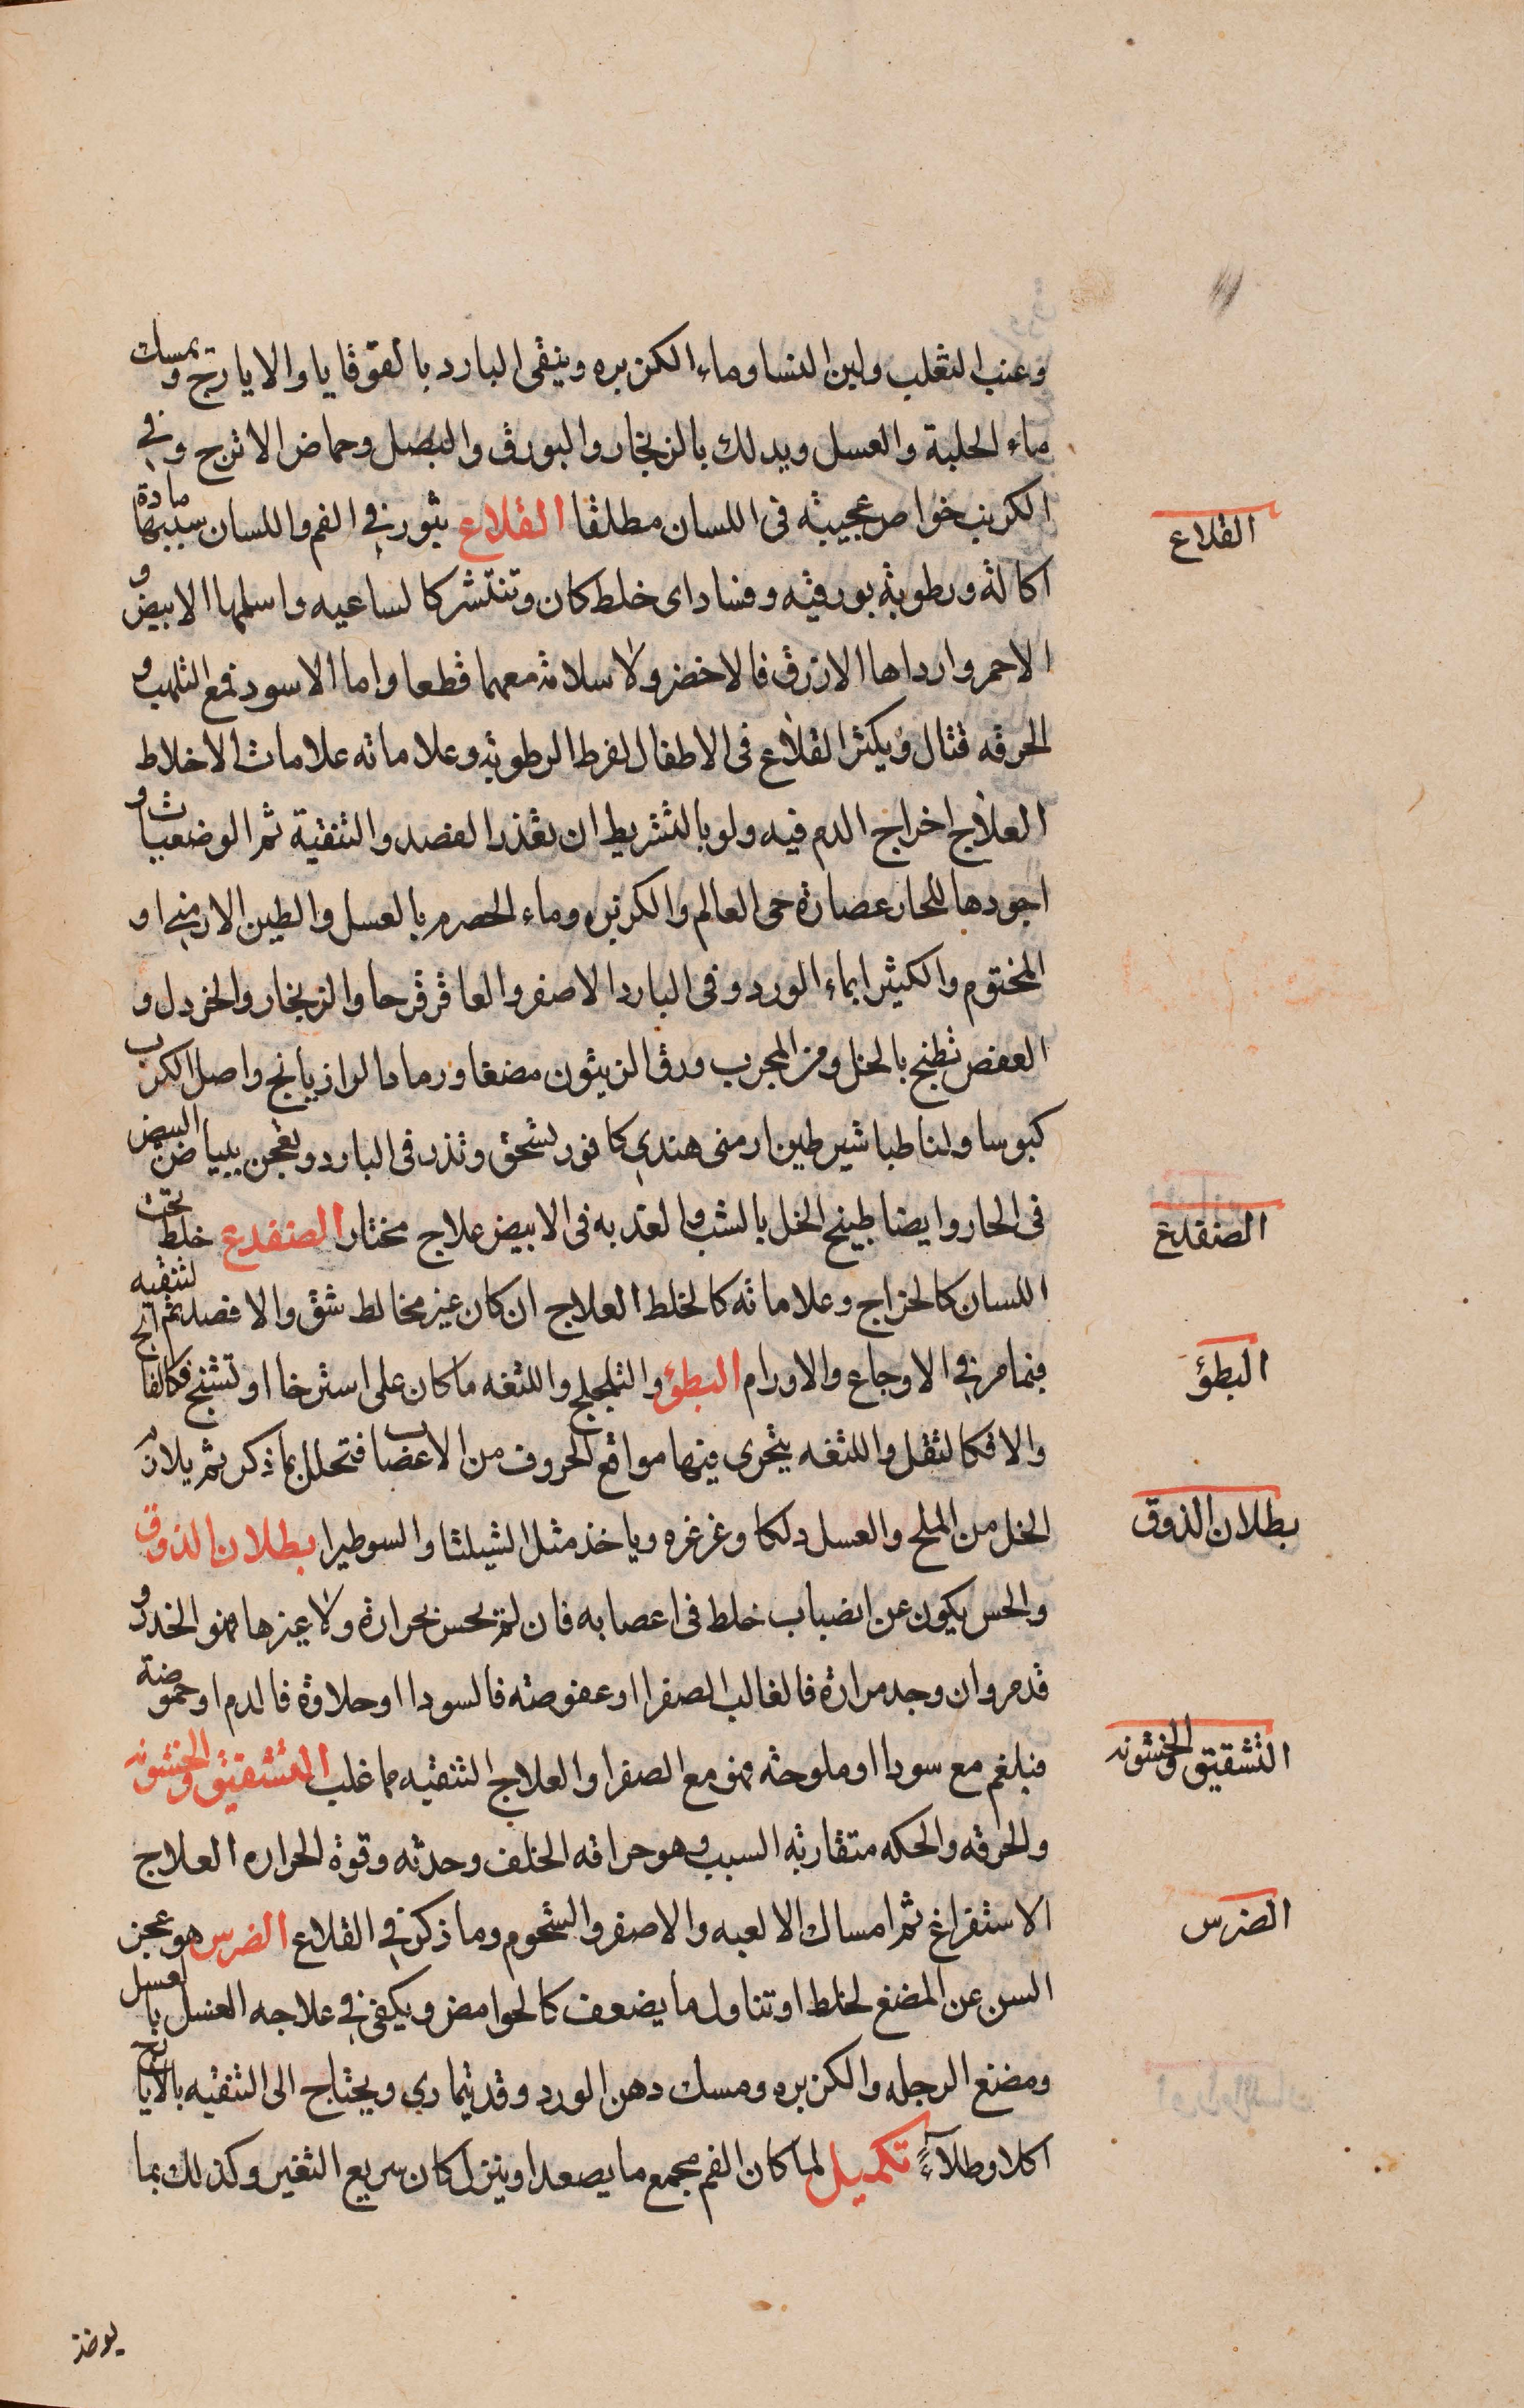 وعنب الثعلب ولبن النسا وماء الكزبره وينقى البارد بالقوقايا والايارج ويمسك
ماء الحلبة والعسل ويدلك بالزنجار والبورق والبصل وحماض الاترج وفي
الكرنب خواص عجيبه فى اللسان مطلقا القلاع بثور في الفم واللسان سببها مادة
اكاله ورطوبه بورقيه وفساد اى خلط كان وتنتشر كالساعيه واسلمها الابيض و
الاحمر وارداها الازرق فالاخضر ولا سلامه معهما قطعا واما الاسود فمع التلهب و
الحرقه قتال ويكثر القلاع فى الاطفال لفرط الرطوبه وعلاماته علامات الاخلاط
العلاج اخراج الدم فيه ولو بالتشريط ان تعذر الفصد والتنقية ثم الوضعيات و
اجودها للحار عصارة حى العالم والكزبره وماء الحصرم بالعسل والطين الارمني او
المختوم والكثيرا بماء الورد وفى البارد الاصفر والعاقرقرحا والزنجار والخردل و
العفص تطبخ بالخل ومن المجرب ورق الزيتون مضغا ورماد الرازيانج واصل الكرنب
كبوسا ولنا طباشير طين ارمنى هندي كافور تسحق وتذر فى البارد وتعجن ببياض البيض
فى الحار وايضا طبيخ الخل بالشب والعذبه فى الابيض علاج مختار الضفدع خلط تحت
اللسان كالخراج وعلاماته كالخلط العلاج ان كان غير مخالط شق والا فصد ثم لتنقيه الخ
فيما مر في الاوجاع والاورام البطؤ والتلجلج واللثغه ما كان على استرخا او تشنج فكالفا
والا فكالثقل واللثغه يتحرى فيها مواقع الحروف من الاعضاب فتحلل بما ذكر ثم يلازم
الخل من الملح والعسل دلكا وغرغره وياخذ مثل الشيلثا والسوطيرا بطلان الذوق
والحس يكون عن انصباب خلط فى اعصابه فان لم يحس بحرارة ولا غيرها فهو الخدر و
قد مر وان وجد مرارة فالغالب الصفرا او عفوصته فالسودا او حلاوة فالدم او حموضة
فبلغم مع سودا او ملوحته فهو مع الصفرا والعلاج التنقيه مما غلب التشقيق والخشونه
والحرقه والحكه متقاربه السبب وهو حرافه الخلف وحدته وقوة الحراره العلاج
الاستفراغ ثم امساك الالعبه والاصفر والشحوم وما ذكر في القلاع الضرس هو عجز
السن عن المضغ لخلط او تناول ما يضعف كالحوامض ويكفي في علاجه الغسل بالعسل
ومضغ الرجله والكزبره ومسك دهن الورد وقد يتمادي ويحتاج الى التنقيه بالايارج
اكلا وطلاءً تكميل لما كان الفم مجمع ما يصعد او ينزل كان سريع التغير وكذلك بما
القلاع
الضفدع
البطؤ
بطلان الذوق
التشقيق والخشونه
الضرس